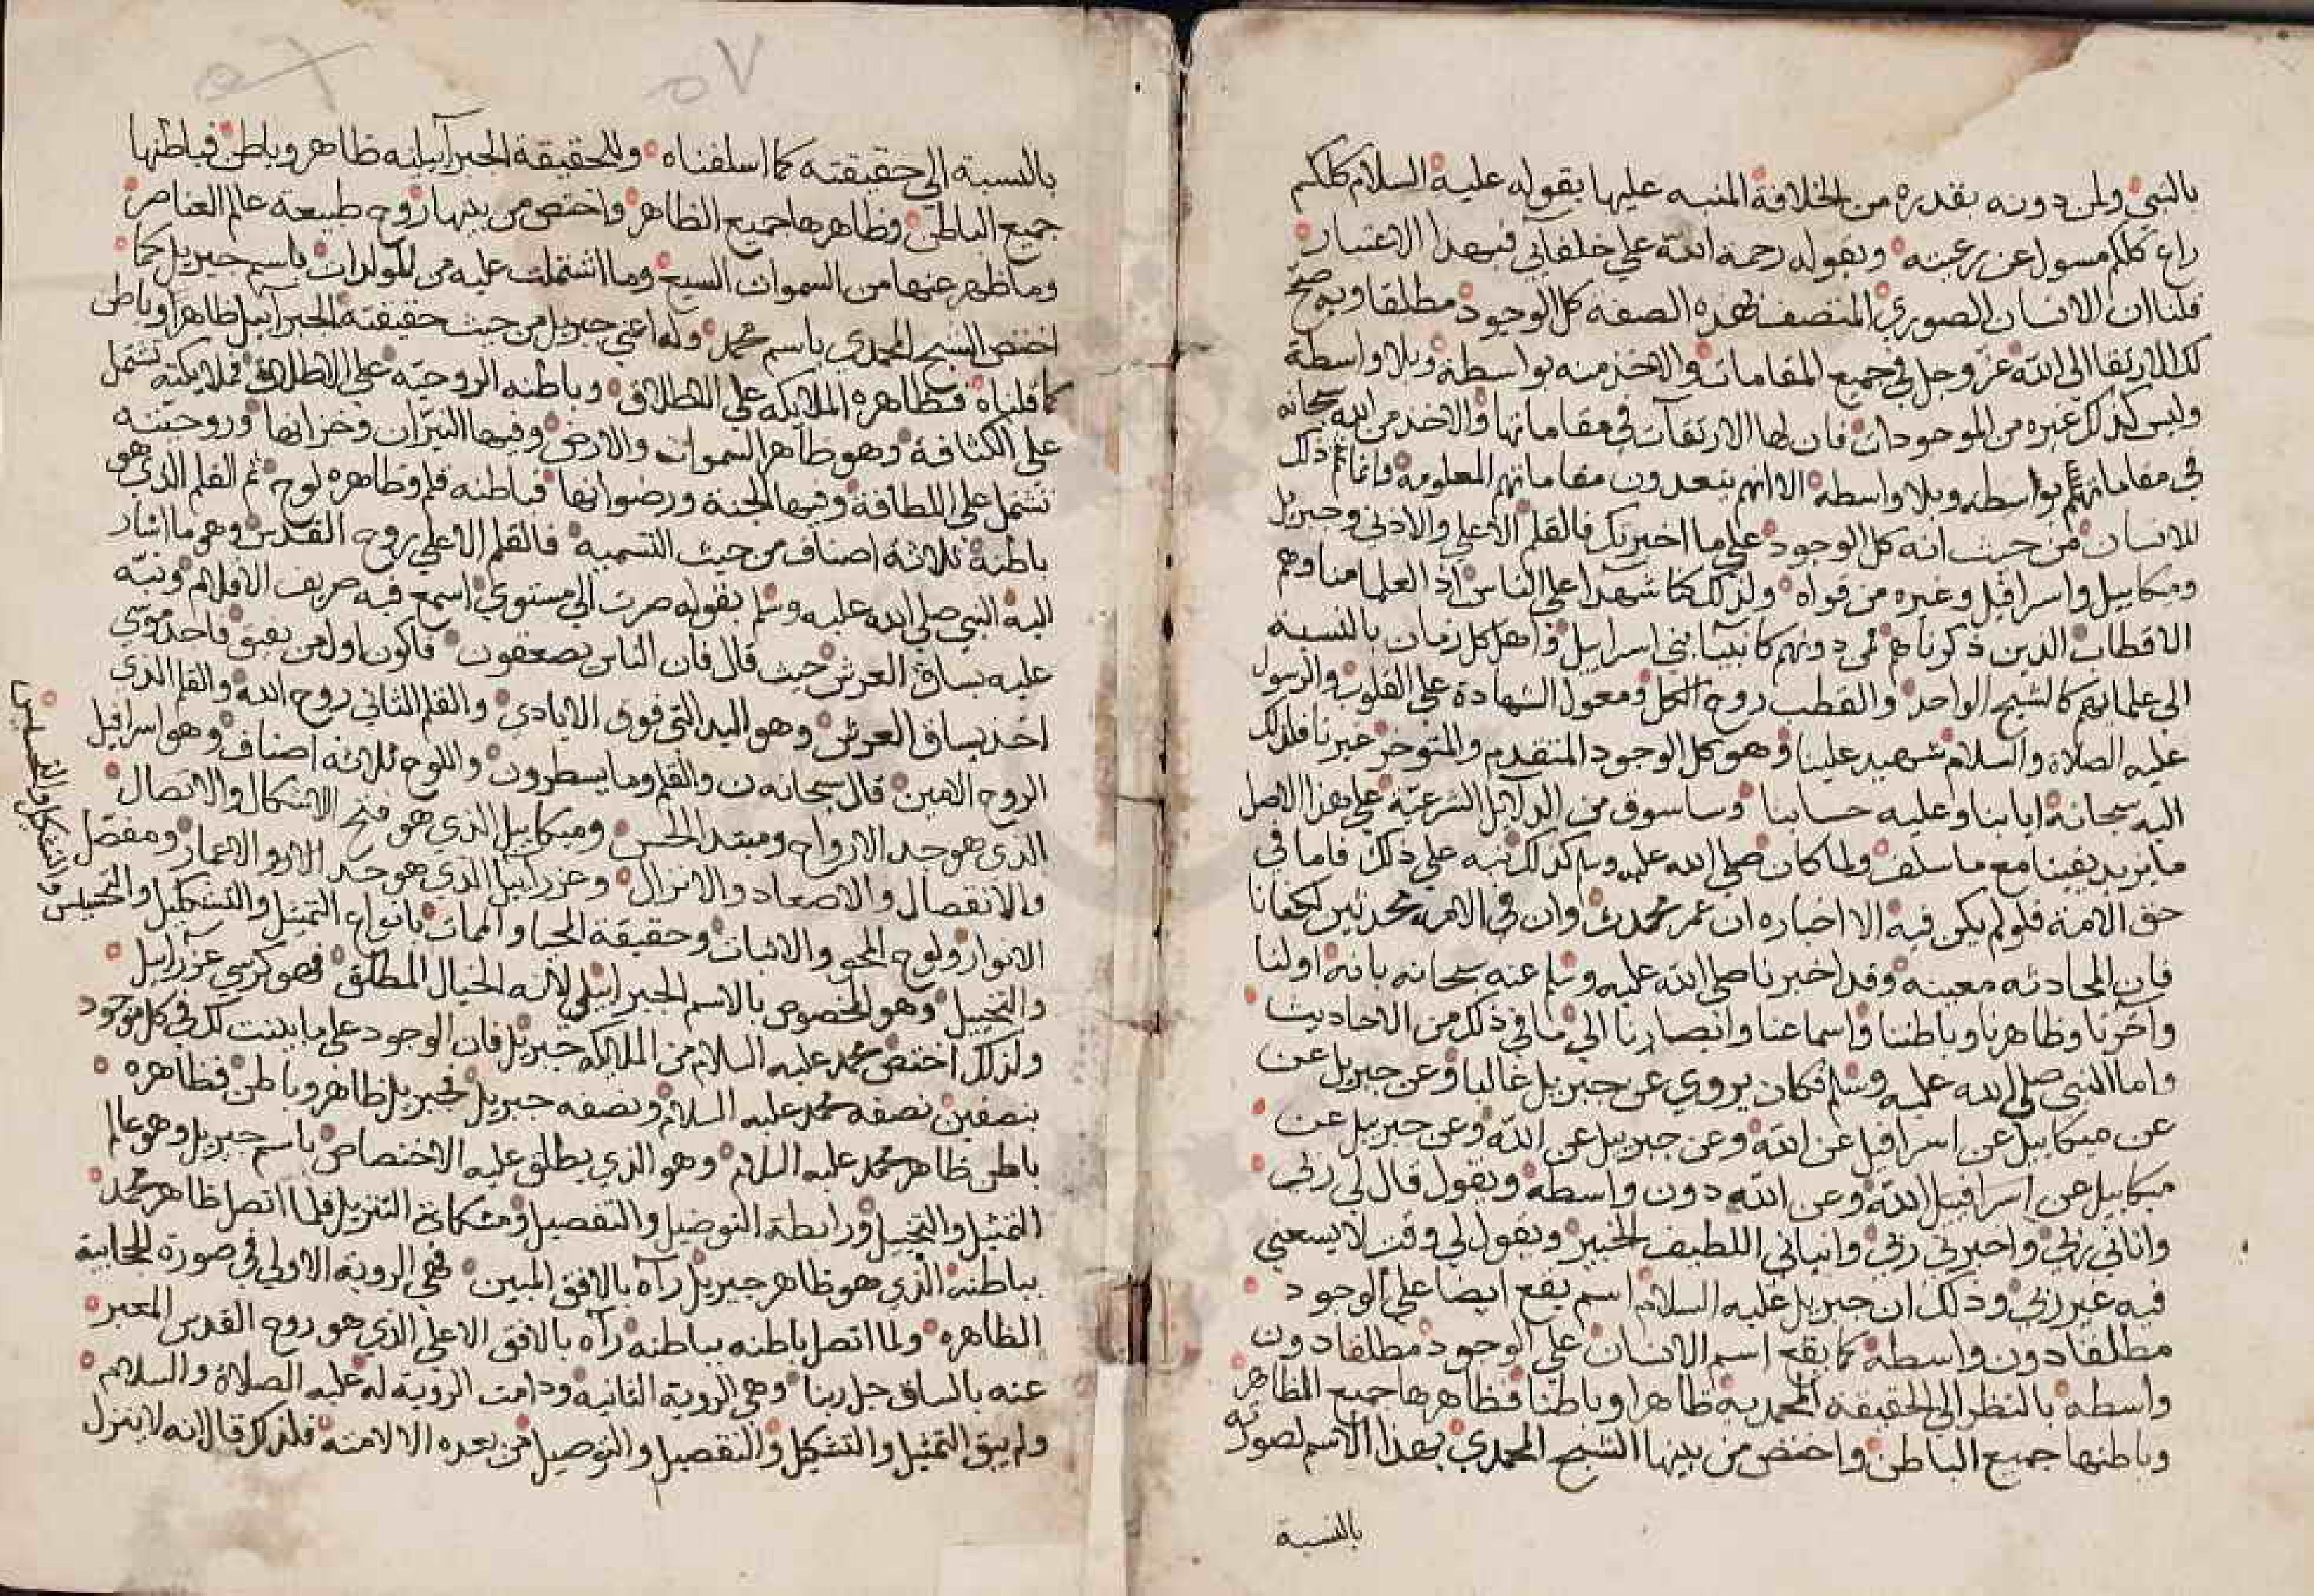 بالنبي ولمن دونه بقدره من الخلافة المنبه عليها بقوله عليه السلام كلكم
راع كلكم مسول عن رعيته وبقوله رحمة الله على خلفاني فبهذا الاعتبار
قلنا ان الانسان الصوري المتصف بهذه الصفه كل الوجود مطلقا وبه صح
لك الارتقا الى الله عز وجل في جميع المقامات والاخذ منه بواسطة وبلا واسطة
وليس كذلك غيره من الموجودات فان لها الارتقآت في مقاماتها والاخذ من الله سبحانه
في مقاماتهم بواسطه وبلا واسطه الا انهم يتعدون مقاماتهم المعلومة وانما ذلك
للانسان من حيث انه كل الوجود على ما اخبرتك فالقلم الاعلى والادنى وجبريل
وميكاييل واسرافيل وغيره من قواه ولذلك كنا شهدا على الناس اذ العلما منا وهم
الاقطاب الذين ذكرناهم فمن دونهم كانبيآ بني اسراييل واهل كل زمان بالنسبة
الى علمائهم كالشبح الواحد والقطب روح الكل ومعول الشهادة على القلوب والرسول
عليه الصلاة والسلام شهيد علينا وهو كل الوجود المتقدم والمتوخر خبرنا فلذلك
اليه سبحانه ايابنا وعليه حسابنا وساسوق من الدلآئل الشرعيّة على هذا الاصل
ما يزيد يقينا مع ما سلف ولما كان صلى الله عليه وسلم كذلك نبه على ذلك فاما في
حق الامة فلو لم يكن فيه الا اخباره ان عمر محدث وان في الامة محدثين لكفانا
فان المحادثه معينه وقد اخبرنا صلى الله عليه وسلم عنه سبحانه بانه اولنا
وآخرنا وظاهرنا وباطننا واسماعنا وابصارنا الى ما في ذلك من الاحاديث
واما النبي صلى الله عليه وسلم فكان يروي عن جبريل غالبا وعن جبريل عن
عن ميكاييل عن اسرافيل عن الله وعن جبرييل عن الله وعن جبريل عن
ميكاييل عن اسرافيل الله وعن الله دون واسطه ويقول قال لي ربي
واتاني ربي واخبرني ربي وانباني اللطيف الخبير ويقول لي وقت لا يسعني
فيه غير ربي وذلك ان جبريل عليه السلام اسم يقع ايضا على الوجود
مطلقا دون واسطه كما يقع اسم الانسان على الوجود مطلقا دون
واسطه بالنظر الى الحقيقة المحمدية ظاهرا وباطنا فظاهرها جميع المظاهر
وباطنها جميع الباطن واختص من بينها الشبح المحمدي بهذا الاسم لصورته
بالنسبة
٥٧
بالنسبة الى حقيقته كما اسلفناه وللحقيقة الجبرآييلية ظاهر وباطن فباطنها
جميع الباطن وظاهرها جميع الظاهر واختص من بينها روح طبيعة عالم العناصر
وما ظهر عنها من السموات السبع وما اشتملت عليه من المولدات باسم جبريل كما
اختص الشبح المحمدي باسم محمد وله اعني جبريل من حيث حقيقته الجبرآييل ظاهرا وباطن
كما قلناه فظاهره الملايكه على الاطلاق وباطنه الروحيّه على الاطلاق فملايكته تشتمل
على الكثافة وهو ظاهر السموات والارض وفيها النيّران وخزانها وروحيّته
تشتمل على اللطافة وفيها الجنة ورضوانها فباطنه قلم وظاهره لوح ثم القلم الذي هو
باطنه ثلاثة اصناف من حيث التسميه فالقلم الاعلى روح القدس وهو ما اشار
اليه النبي صلى الله عليه وسلم بقوله صرت الى مستوى اسمع فيه صريف الاقلام ونبّه
عليه بساق العرش حيث قال فان الناس يصعقون فاكون اول من يفيق فاجد موسى
اخذ بساق العرش وهو اليد التي فوق الايادي والقلم الثاني روح الله والقلم الذي
الروح الامين قال سبحانه ن والقلم وما يسطرون واللوح ثلاثه اصناف وهو اسرافيل
الذي هو حد الارواح ومبتدا الحس وميكاييل الذي هو فتح الاشكال والاتصال
والانفصال والاصعاد والانزال وعزرآييل الذي هو حد الارو الاعمار ومفصّل
الانوار ولوح المحو والاثبات وحقيقة المحيا والممات بانواع التمثيل والتشكيل والتخييلس
والتشكل والتخييلس
والتخييل وهو المخصوص بالاسم الجبراييلي لانه الخيال المطلق فهو كرسي عزرآييل
ولذلك اختص محمد عليه السلام من الملايكه جبريل فان الوجود على ما بينت لك في كل موجود
بنصفين نصفه محمد عليه السلام ونصفه جبريل فجبريل ظاهر وباطن فظاهره
باطن ظاهر محمد عليه السلام وهو الذي يطلق عليه الاختصاص باسم جبريل وهو عالم
التمثيل والتخييل ورابطة التوصيل والتفصيل ومشكاة التنزيل فلما اتصل ظاهر محمد
بباطنه الذي هو ظاهر جبريل رآه بالافق المبين فهي الروية الاولى في صورة الحجابية
الظاهره ولما اتصل باطنه بباطنه رآه بالافق الاعلى الذي هو روح القدس المعبر
عنه بالساق جل ربنا وهي الروية الثانيه ودامت الروية له عليه الصلاة والسلام
ولم يبق التمثيل والتشكل والتفصيل والتوصيل من بعده الا لامته فلذلك قال انه لا ينزل